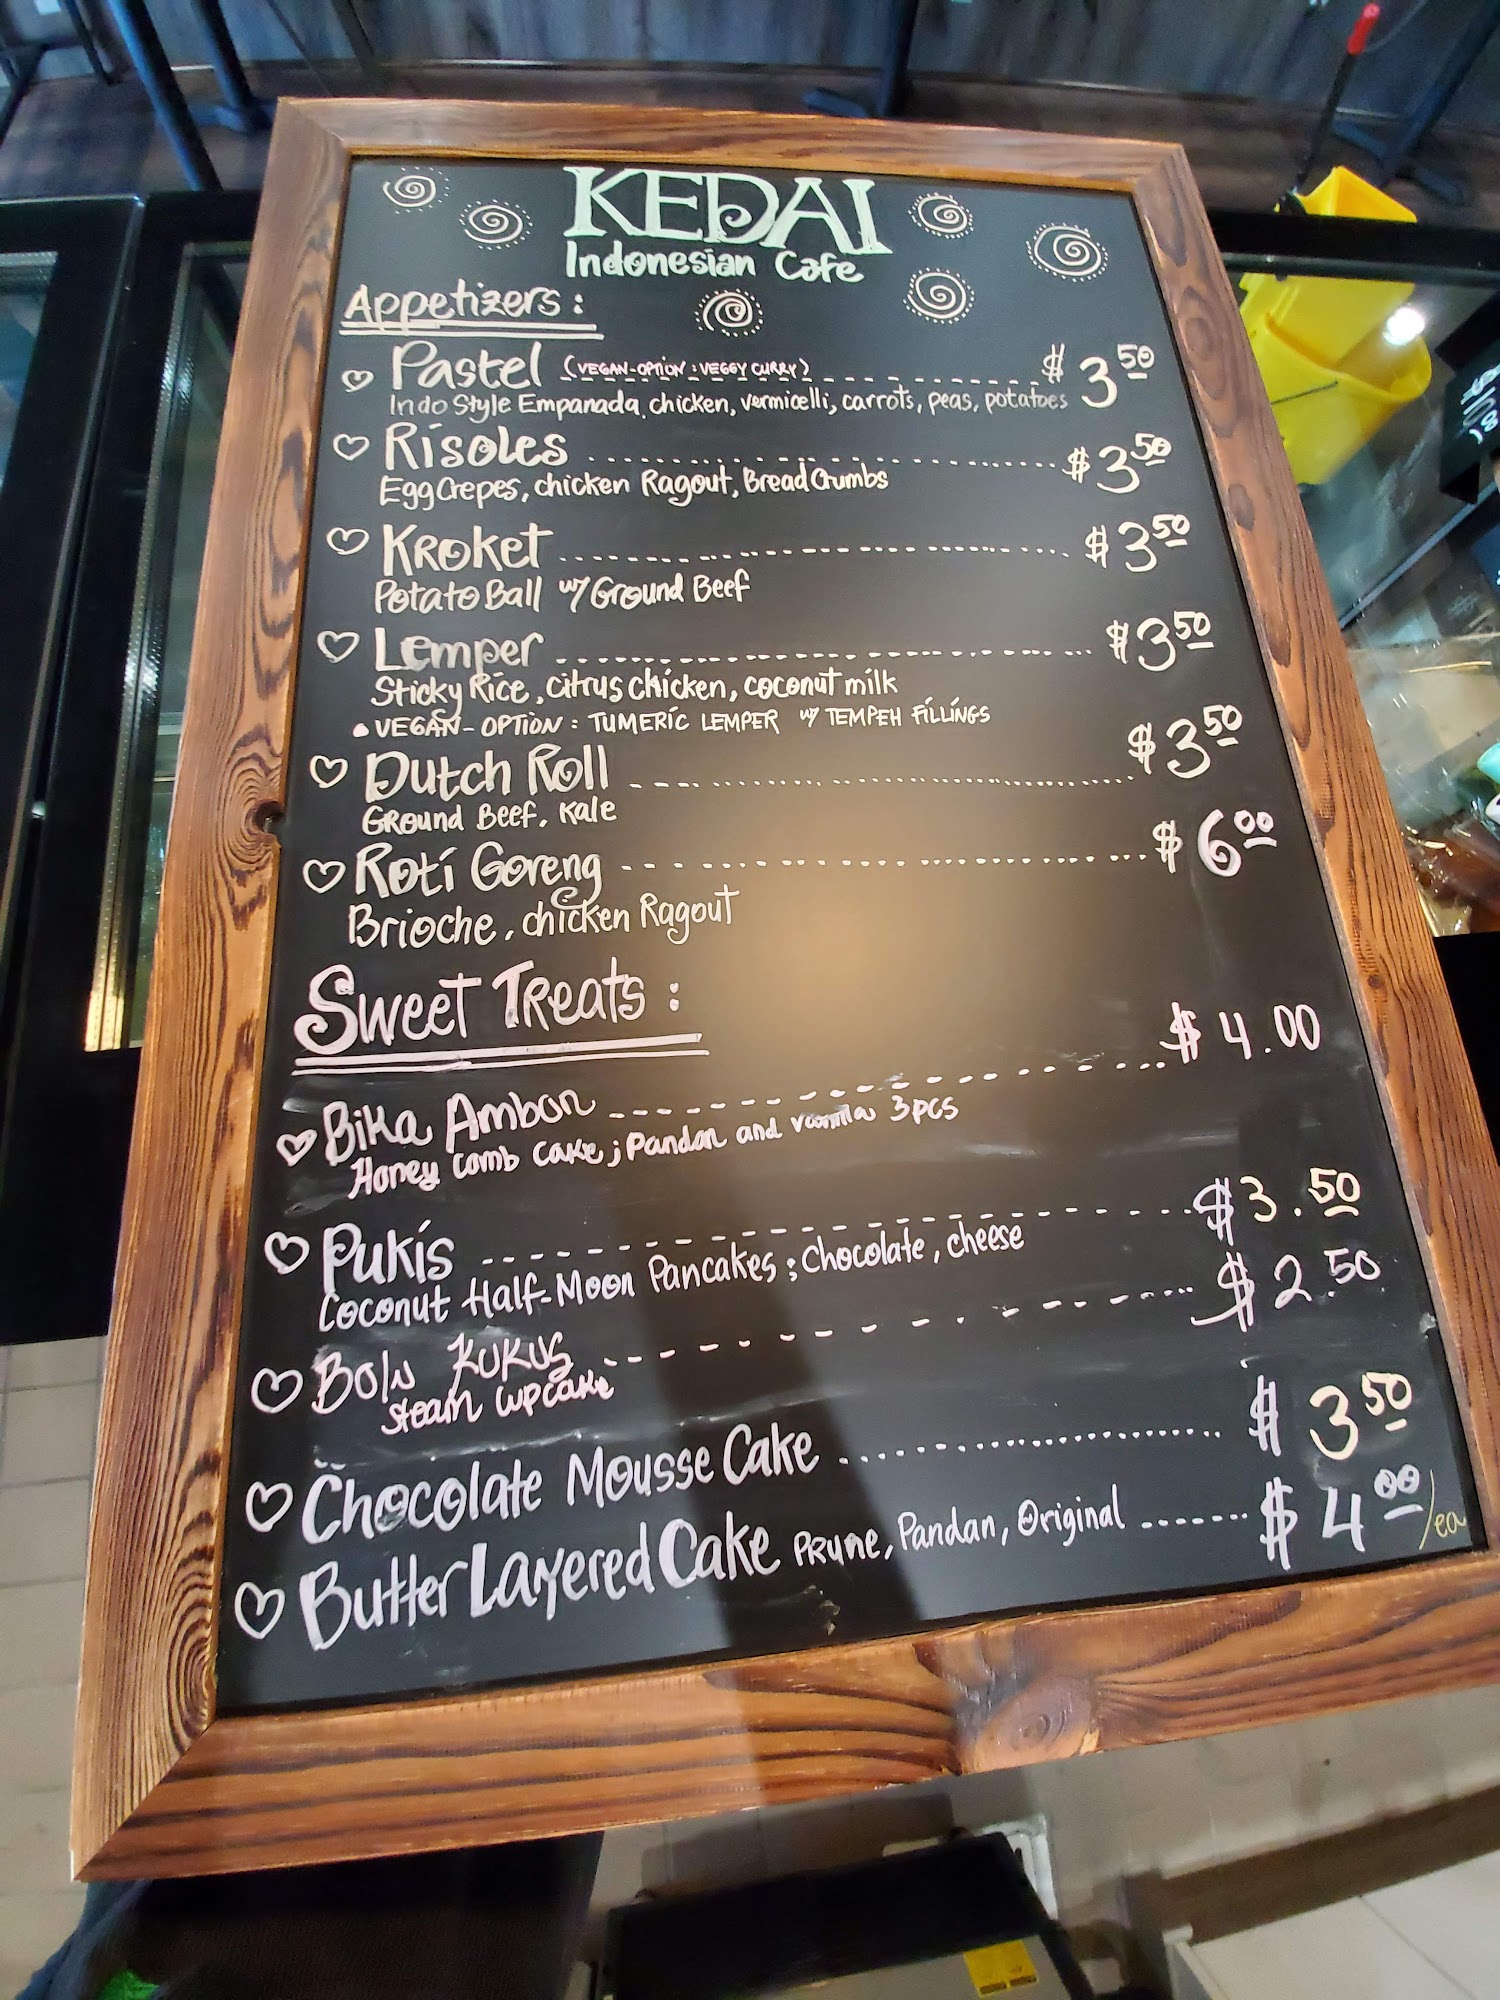 KEDAI
Indonesian Cafe
Appetizers :
Pastel (VEGAN-OPTION : VEGGY CURRY) $ 3.50
Indo Style Empanada, chicken, vermicelli, carrots, peas, potatoes
Risoles $ 3.50
Egg Crepes, chicken Ragout, Bread Crumbs
Kroket $ 3.50
Potato Ball w/ Ground Beef
Lemper $ 3.50
Sticky Rice, citrus chicken, coconut milk
• VEGAN-OPTION : TUMERIC LEMPER w/ TEMPEH FILLINGS
Dutch Roll $ 3.50
Ground Beef, Kale
Roti Goreng $ 6.00
Brioche, chicken Ragout
Sweet Treats :
Bika Ambon $ 4.00
Honey Comb Cake ; pandan and vanilla 3pcs
Pukis $ 3.50
Coconut Half-Moon Pancakes ; Chocolate, cheese
Bolu Kukus $ 2.50
Steam Cupcake
Chocolate Mousse Cake $ 3.50
Butter Layered Cake Prune, Pandan, Original $ 4.00/ea